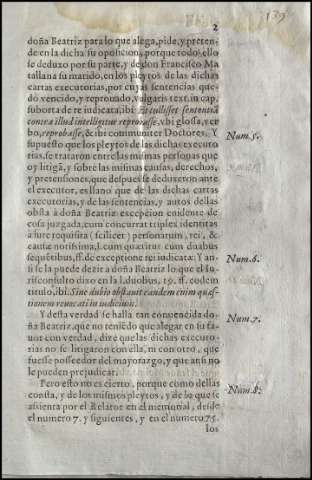 2
139
doña Beatriz para lo que alega, pide, y preten-
de en la dicha su oposicion, porque todo ello
se deduxo por su parte, y de don Francisco Ma
tallana su marido, en los pleytos de las dichas
cartas executorias, por cuyas sentencias que-
dò vencido, y reprouado, vulgaris text. in cap.
suborta de re iudicata, ibi: sententia
contra illud intelligitur reprobasse, vbi glossa, ver
bo, reprobasse, & ibi communiter Doctores. Y
Num. 5.
supuesto que los pleytos de las dichas executo
rias, se trataron entre las mismas personas que
oy litigã, y sobre las mismas causas, derechos,
y pretensiones, que despues se deduxeron ante
el executor, es llano que de las dichas cartas
executorias, y de las sentencias, y autos dellas
obsta à doña Beatriz excepcion euidente de
cosa juzgada, cum concurrat triplex identitas
a iure requisita (scilicet) personarum, rei, &
causæ notissima, l. cum quæritur cum duabus
sequẽtibus, ff. de exceptione rei iudicatæ: Y an-
Num. 6.
si se la puede dezir a doña Beatriz lo que el Iu-
risconsulto dixo en la l. duobus, 19. ff. eodem
titulo, ibi: Sine dubio obstauit eandem enim quæs-
tionem reuocat in iudicium.
Y desta verdad se halla tan conuencida do-
Num. 7.
ña Beatriz, que no teniẽdo que alegar en su fa-
uor con verdad, dize que las dichas executo-
rias no se litigaron con ella, ni con otro, que
fuesse posseedor del mayorazgo, y que ansi no
le pueden prejudicar.
Pero esto no es cierto, porque como dellas
Num. 8.
consta, y de los mismos pleytos, y de lo que se
assienta por el Relator en el memorial, desde
el numero 7. y siguientes, y en el numero 75.
los